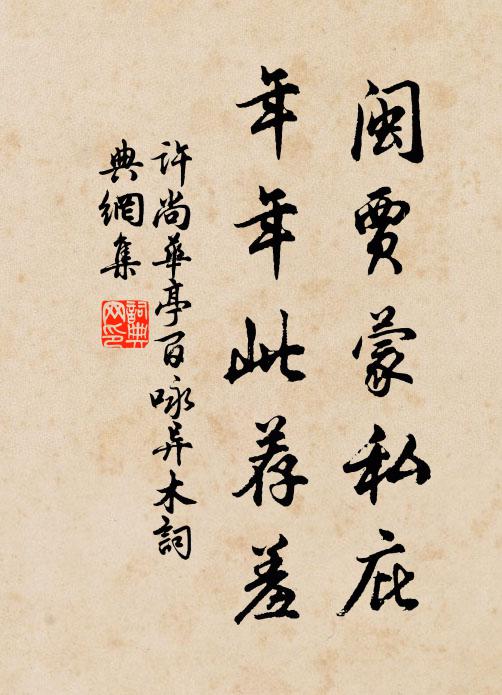 闽贾蒙私庇
年年此荐羞
许尚华亭百咏异木词
典网集
词典网印